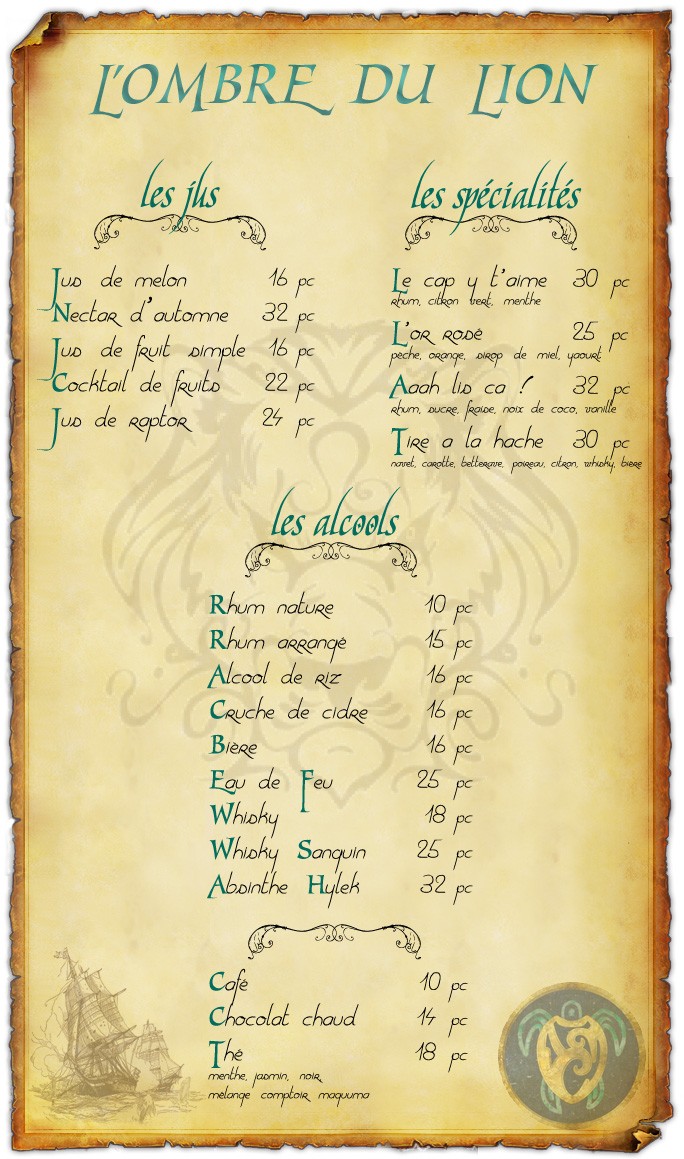 L'OMBRE DU LION
les jus
Jus de melon 16 pc
Nectar d'automne 32 pc
Jus de fruit simple 16 pc
Cocktail de fruits 22 pc
Jus de raptor 24 pc
les spécialités
Le cap y t'aime 30 pc
rhum, citron vert, menthe
L'or rosé 25 pc
pèche, orange, sirop de miel, yaourt
Aaah lis ca ! 32 pc
rhum, sucre, fraise, noix de coco, vanille
Tire a la hache 30 pc
navet, carotte, betterave, poireau, citron, whisky, bière
les alcools
Rhum nature 10 pc
Rhum arrangé 15 pc
Alcool de riz 16 pc
Cruche de cidre 16 pc
Bière 16 pc
Eau de Feu 25 pc
Whisky 18 pc
Whisky Sanguin 25 pc
Absinthe Hylek 32 pc
Café 10 pc
Chocolat chaud 14 pc
Thé 18 pc
menthe, jasmin, noir,
mélange comptoir maquuma